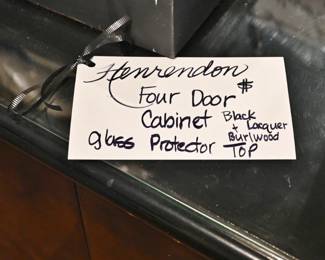 Henrendon
Four Door $
Cabinet Black
+ Lacquer
Burlwood
glass Protector TOP